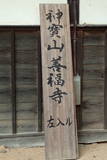 神寳山善福寺
左入ル